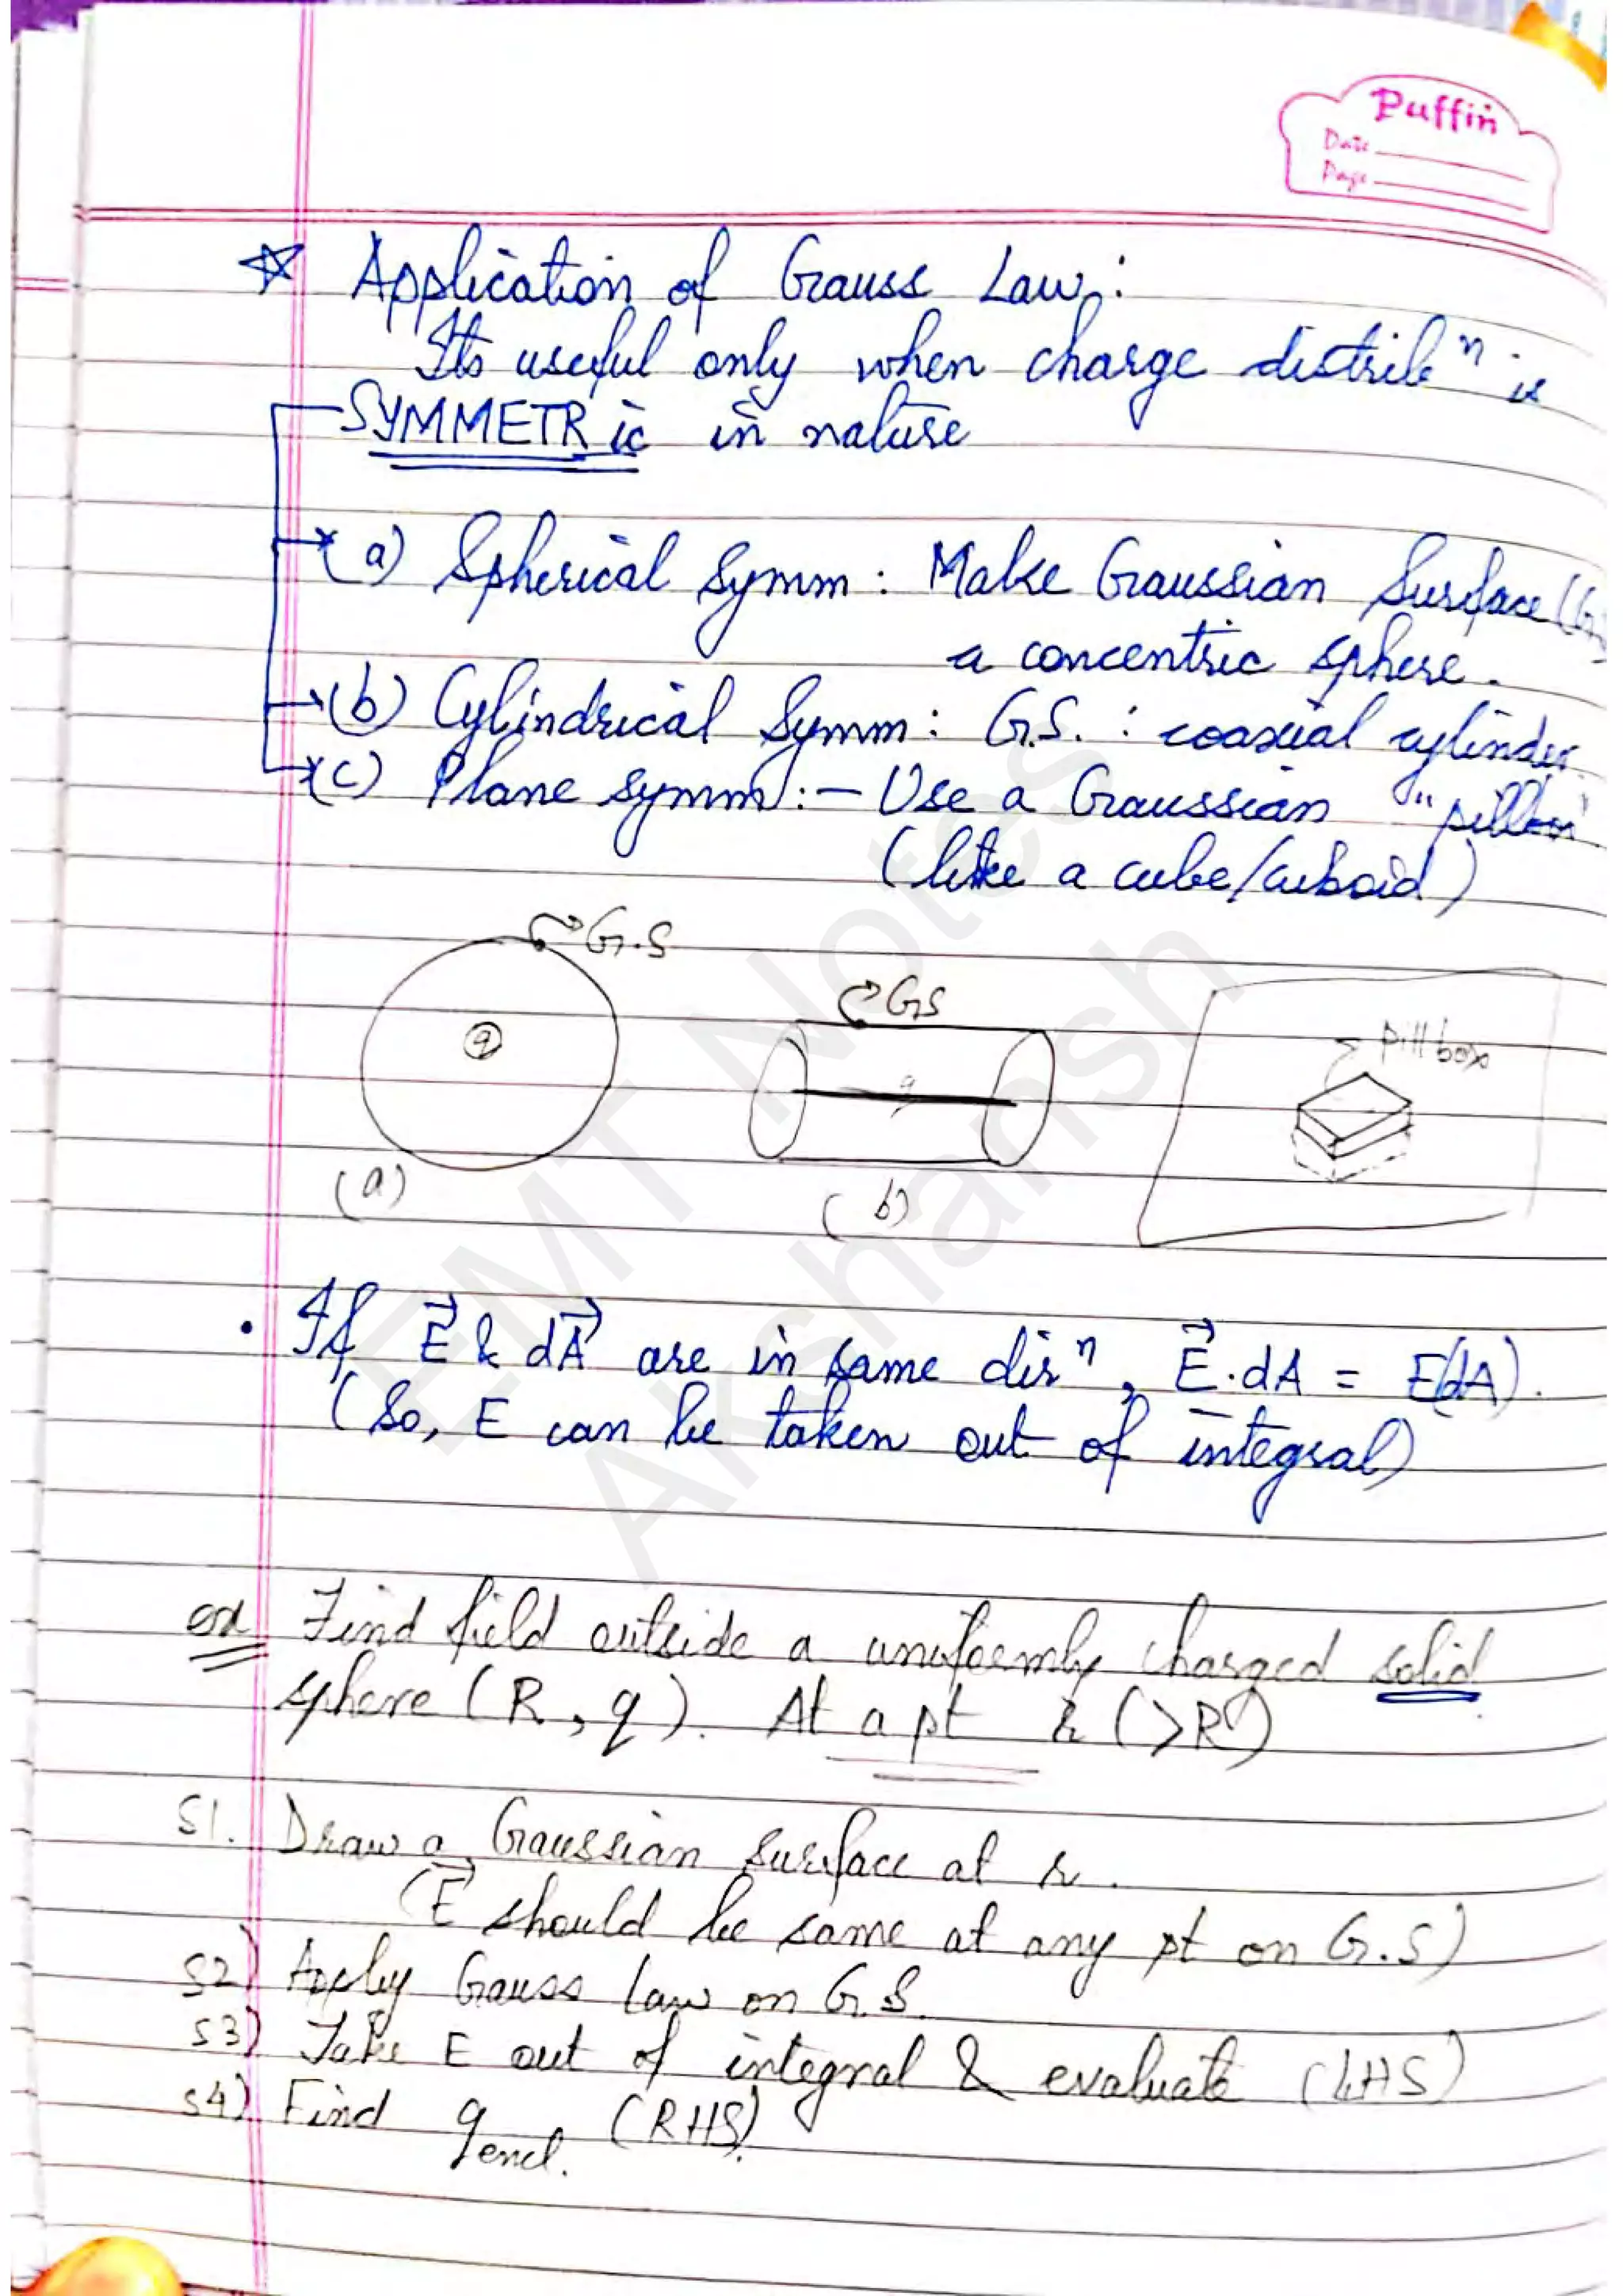 Puffin
Date
Page
☆ Application of Gauss Law:
Its useful only when charge distribⁿ is
SYMMETRic in nature
(a) Spherical Symm : Make Gaussian Surface (G
a concentric sphere.
(b) Cylindrical Symm : G.S. : coaxial cylinder.
(c) Plane symm :- Use a Gaussian "pillbox"
(like a cube/cuboid)
G.S
q
(a)
GS
q
(b)
pill box
• If E⃗ & dA⃗ are in same dirⁿ, E⃗.dA = E(dA).
(So, E can be taken out of integral)
ex Find field outside a uniformly charged solid
sphere (R, q). At a pt r (>R)
S1. Draw a Gaussian surface at r.
(E⃗ should be same at any pt on G.S)
S2) Apply Gauss Law on G.S.
S3) Take E out of integral & evaluate (LHS)
S4) Find qencl. (RHS).
EMT Notes
Akshansh